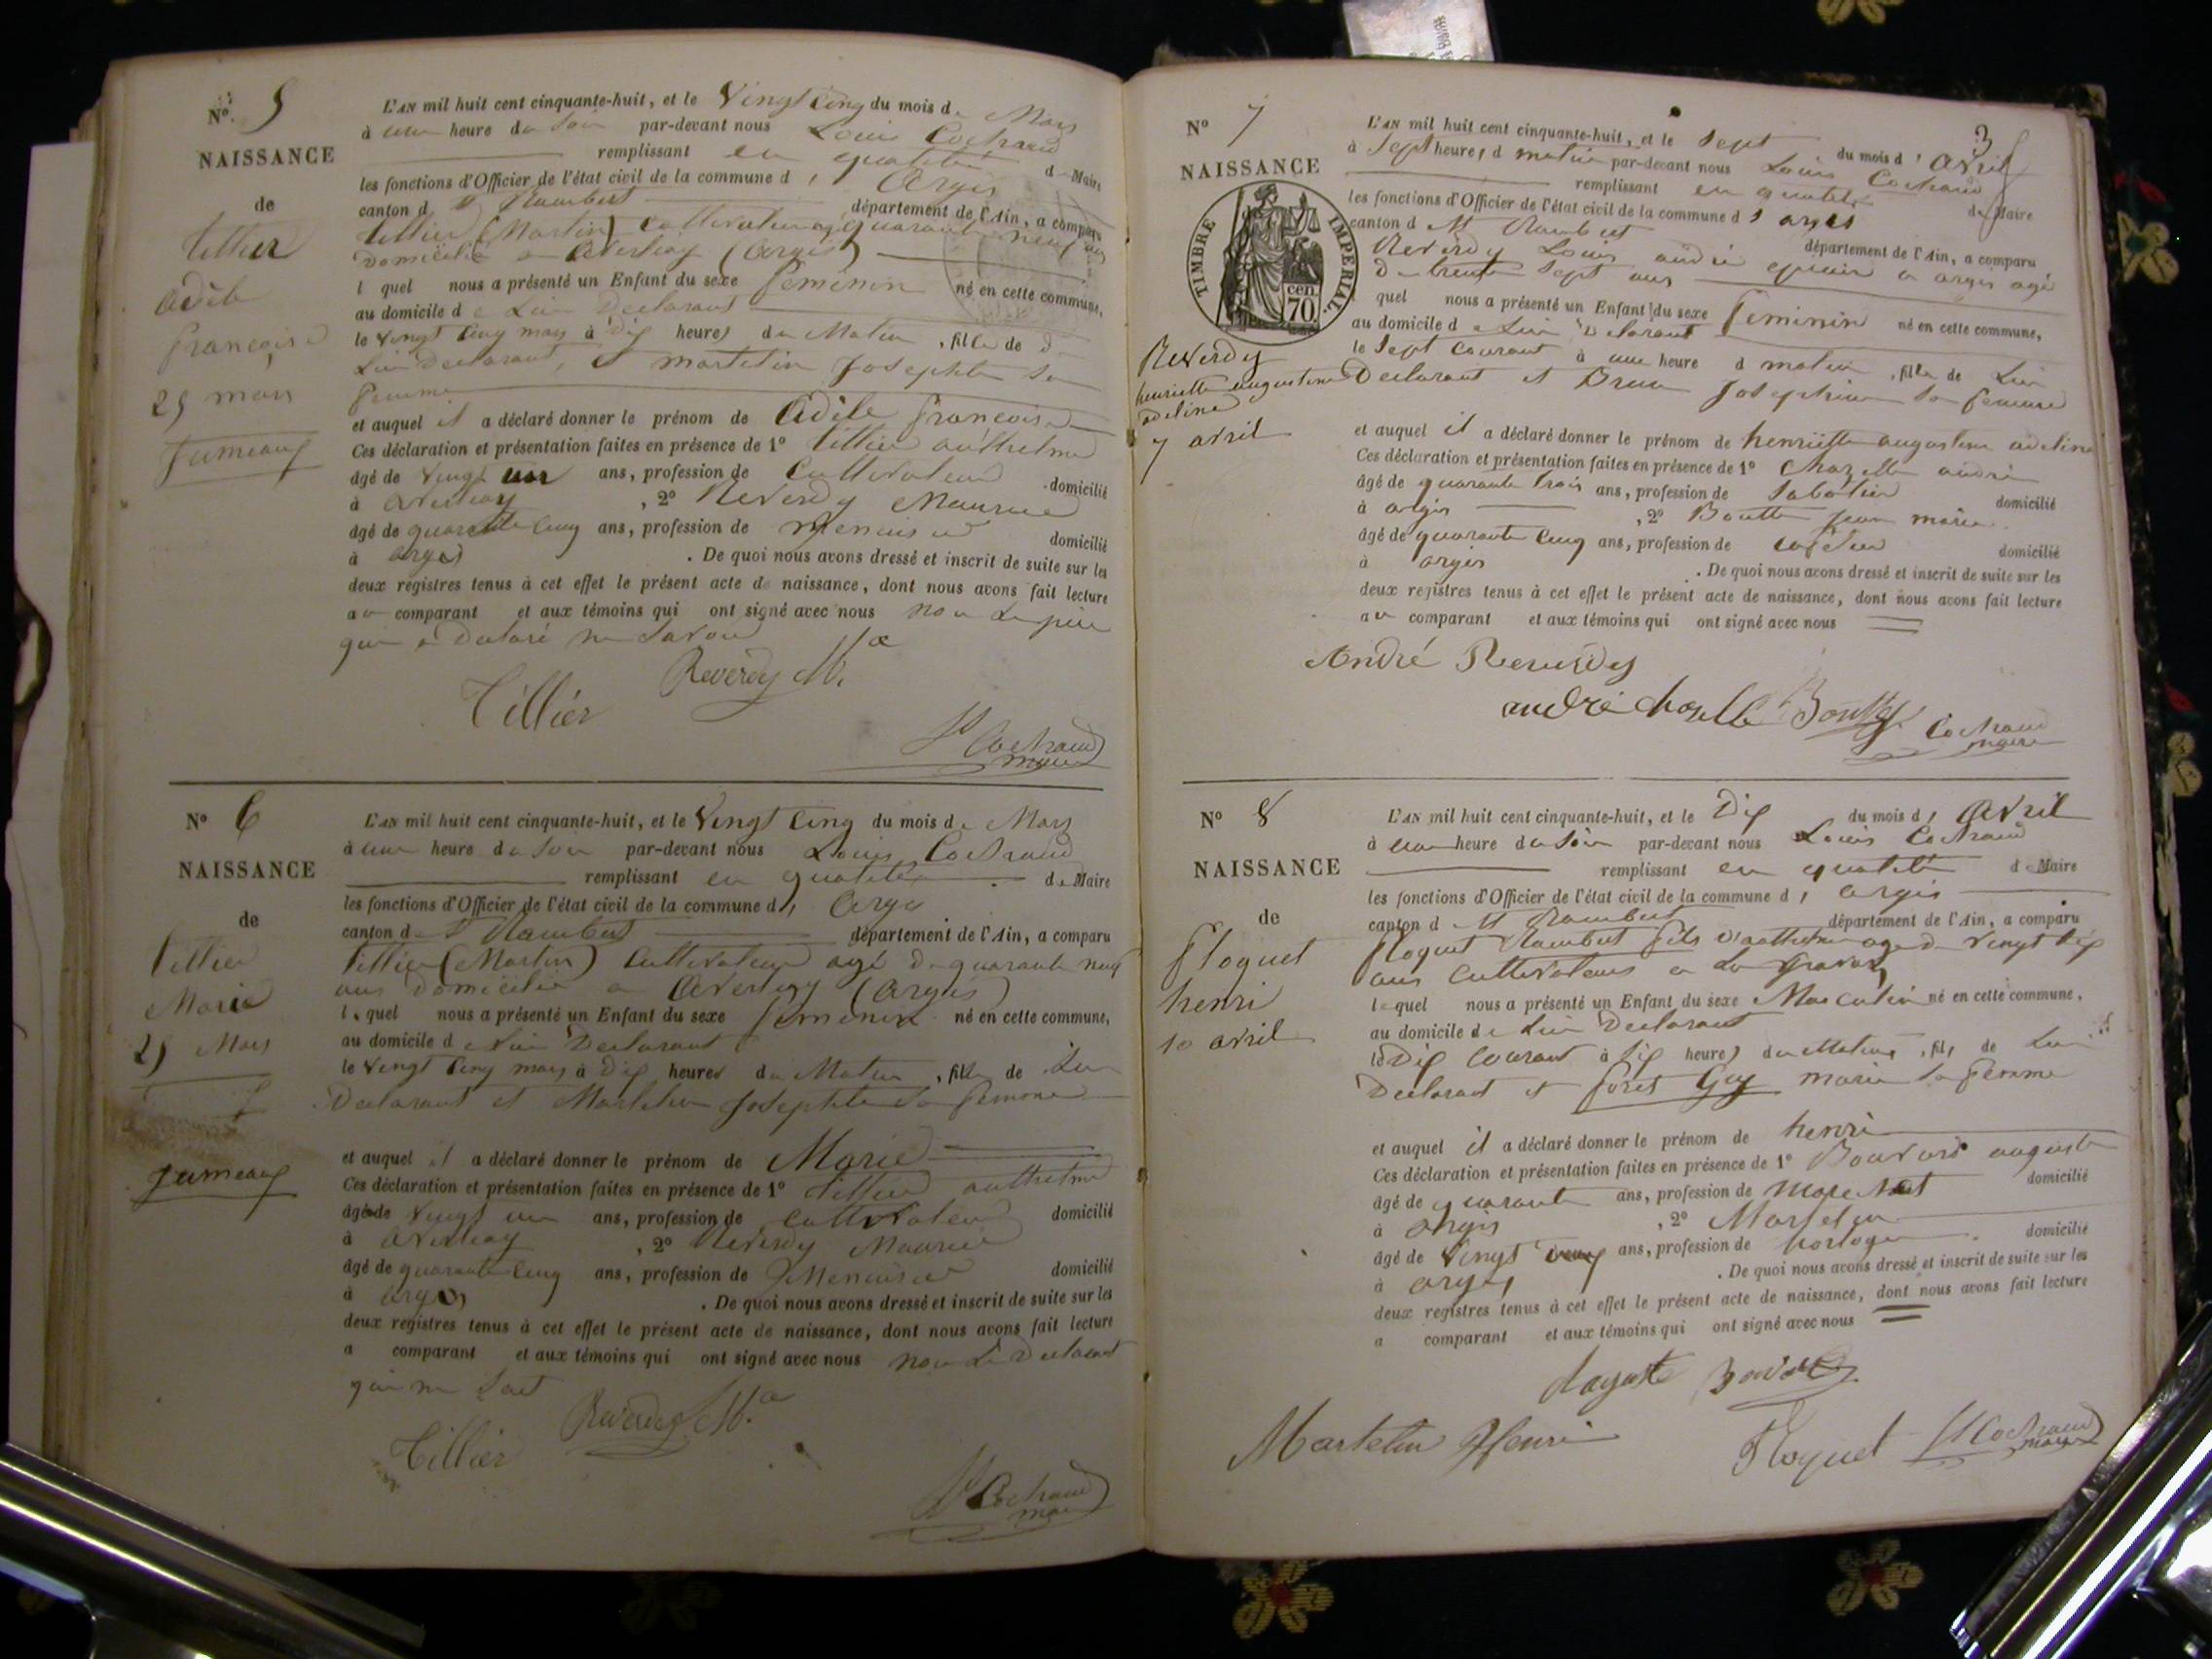 No. 5
NAISSANCE
de
Tillier
Adèle
françoise
25 mars
Jumeaux
L'AN mil huit cent cinquante-huit, et le Vingt Cinq du mois de Mars
à une heure du Soir par-devant nous Louis Cochraud
remplissant en qualité de Maire
les fonctions d'Officier de l'état civil de la commune d' Argis
canton d St Rambert département de l'Ain, a comparu
Tillier (Martin) Cultivateur agé quarante neuf ans
Domicilié a Averliay (Argis)
l quel nous a présenté un Enfant du sexe féminin né en cette commune,
au domicile de Lui Declarant
le Vingt Cinq mars à Dix heures du Matin, fille de
Lui Declarant, et Martelin Josephte sa
femme
et auquel il a déclaré donner le prénom de Adèle françoise
Ces déclaration et présentation faites en présence de 1º Tillier anthelme
âgé de Vingt un ans, profession de Cultivateur domicilié
à Averliay, 2º Reverdy Maurice
âgé de quarante Cinq ans, profession de Menuisier domicilié
à argis. De quoi nous avons dressé et inscrit de suite sur les
deux registres tenus à cet effet le présent acte de naissance, dont nous avons fait lecture
au comparant et aux témoins qui ont signé avec nous non Le père
qui a Declaré ne Savoir
Tillier Reverdy Mce
Cochraud
maire
No 6
NAISSANCE
de
Tillier
Marie
25 Mars
Jumeaux
L'AN mil huit cent cinquante-huit, et le Vingt Cinq du mois de Mars
à une heure du Soir par-devant nous Louis Cochraud
remplissant en qualité de Maire
les fonctions d'Officier de l'état civil de la commune d' Argis
canton de St Rambert département de l'Ain, a comparu
Tillier (Martin) Cultivateur agé de quarante neuf
ans Domicilié a Averliay (Argis)
le quel nous a présenté un Enfant du sexe féminin né en cette commune,
au domicile de Lui Declarant
le Vingt Cinq mars à Dix heures du Matin, fille de Lui
Declarant et Martelin Josephte Sa femme
et auquel il a déclaré donner le prénom de Marie
Ces déclaration et présentation faites en présence de 1º Tillier anthelme
âgé de Vingt un ans, profession de Cultivateur domicilié
à Averliay, 2º Reverdy Maurice
âgé de quarante Cinq ans, profession de Menuisier domicilié
à argis. De quoi nous avons dressé et inscrit de suite sur les
deux registres tenus à cet effet le présent acte de naissance, dont nous avons fait lecture
a comparant et aux témoins qui ont signé avec nous non Le Declarant
qui ne Sait
Tillier Reverdy Mce
Cochraud
maire
3
No 7
NAISSANCE
TIMBRE IMPERIAL
70 cen.
Reverdy
henriette augustine
adeline
7 avril
L'AN mil huit cent cinquante-huit, et le Sept du mois d' Avril
à Sept heures du matin par-devant nous Louis Cochraud
remplissant en qualité de Maire
les fonctions d'Officier de l'état civil de la commune d' argis
canton d St Rambert département de l'Ain, a comparu
Reverdy Louis andré a argis agé
De trente Sept ans
quel nous a présenté un Enfant du sexe féminin né en cette commune,
au domicile de Lui Declarant
le Sept Courant à une heure d matin, fille de Lui
Declarant et Josephine Sa femme
et auquel il a déclaré donner le prénom de henriette augustine adeline
Ces déclaration et présentation faites en présence de 1º Chazelle andré
âgé de quarante trois ans, profession de Sabotier domicilié
à argis, 2º Bouttet jean marie
âgé de quarante Cinq ans, profession de domicilié
à argis. De quoi nous avons dressé et inscrit de suite sur les
deux registres tenus à cet effet le présent acte de naissance, dont nous avons fait lecture
au comparant et aux témoins qui ont signé avec nous
André Reverdy
andré chazelle Cochraud
maire
No 8
NAISSANCE
de
floquet
henri
10 avril
L'AN mil huit cent cinquante-huit, et le Dix du mois d' Avril
à une heure du Soir par-devant nous Louis Cochraud
remplissant en qualité de Maire
les fonctions d'Officier de l'état civil de la commune d' argis
canton d St Rambert département de l'Ain, a comparu
floquet Rambert fils d'anthelme age de Vingt Six
ans Cultivateur a
le quel nous a présenté un Enfant du sexe Masculin né en cette commune,
au domicile de Lui Declarant
le Dix Courant à Six heures du Matin, fils de Lui
Declarant et foret Guy marie Sa femme
et auquel il a déclaré donner le prénom de henri
Ces déclaration et présentation faites en présence de 1º auguste
âgé de quarante ans, profession de domicilié
à argis, 2º Martelin
âgé de Vingt ans, profession de horloger domicilié
à argis. De quoi nous avons dressé et inscrit de suite sur les
deux registres tenus à cet effet le présent acte de naissance, dont nous avons fait lecture
a comparant et aux témoins qui ont signé avec nous
Martelin Henri Floquet Cochraud
maire